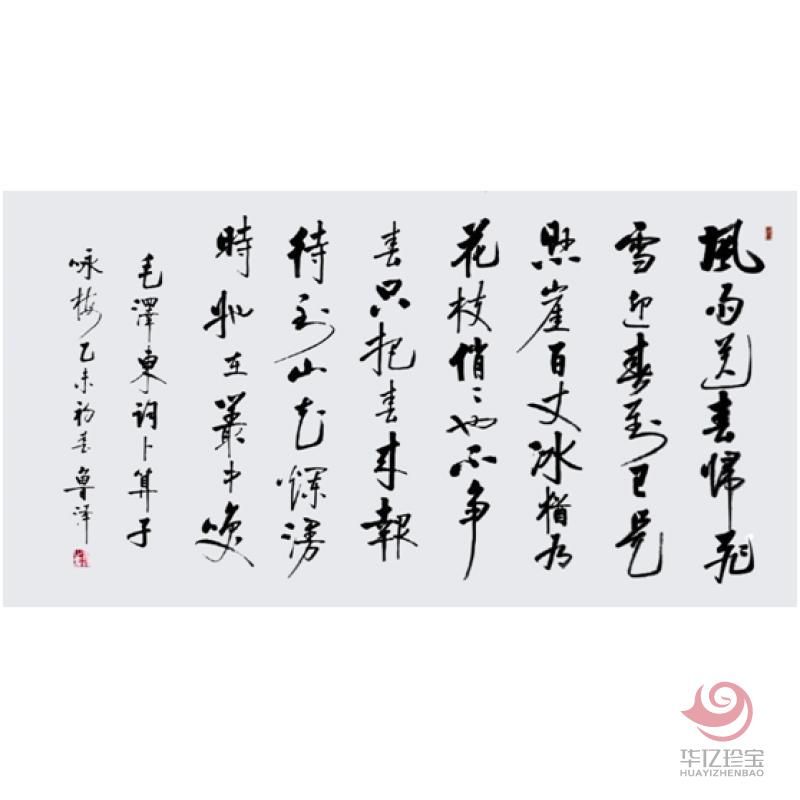 風雨送春歸飛
雪迎春到已是
懸崖百丈冰猶有
花枝俏〻也不争
春只把春来報
待到山花爛漫
時她在叢中笑
毛澤東詞卜算子
咏梅乙未初春魯泽
华亿珍宝
HUAYIZHENBAO